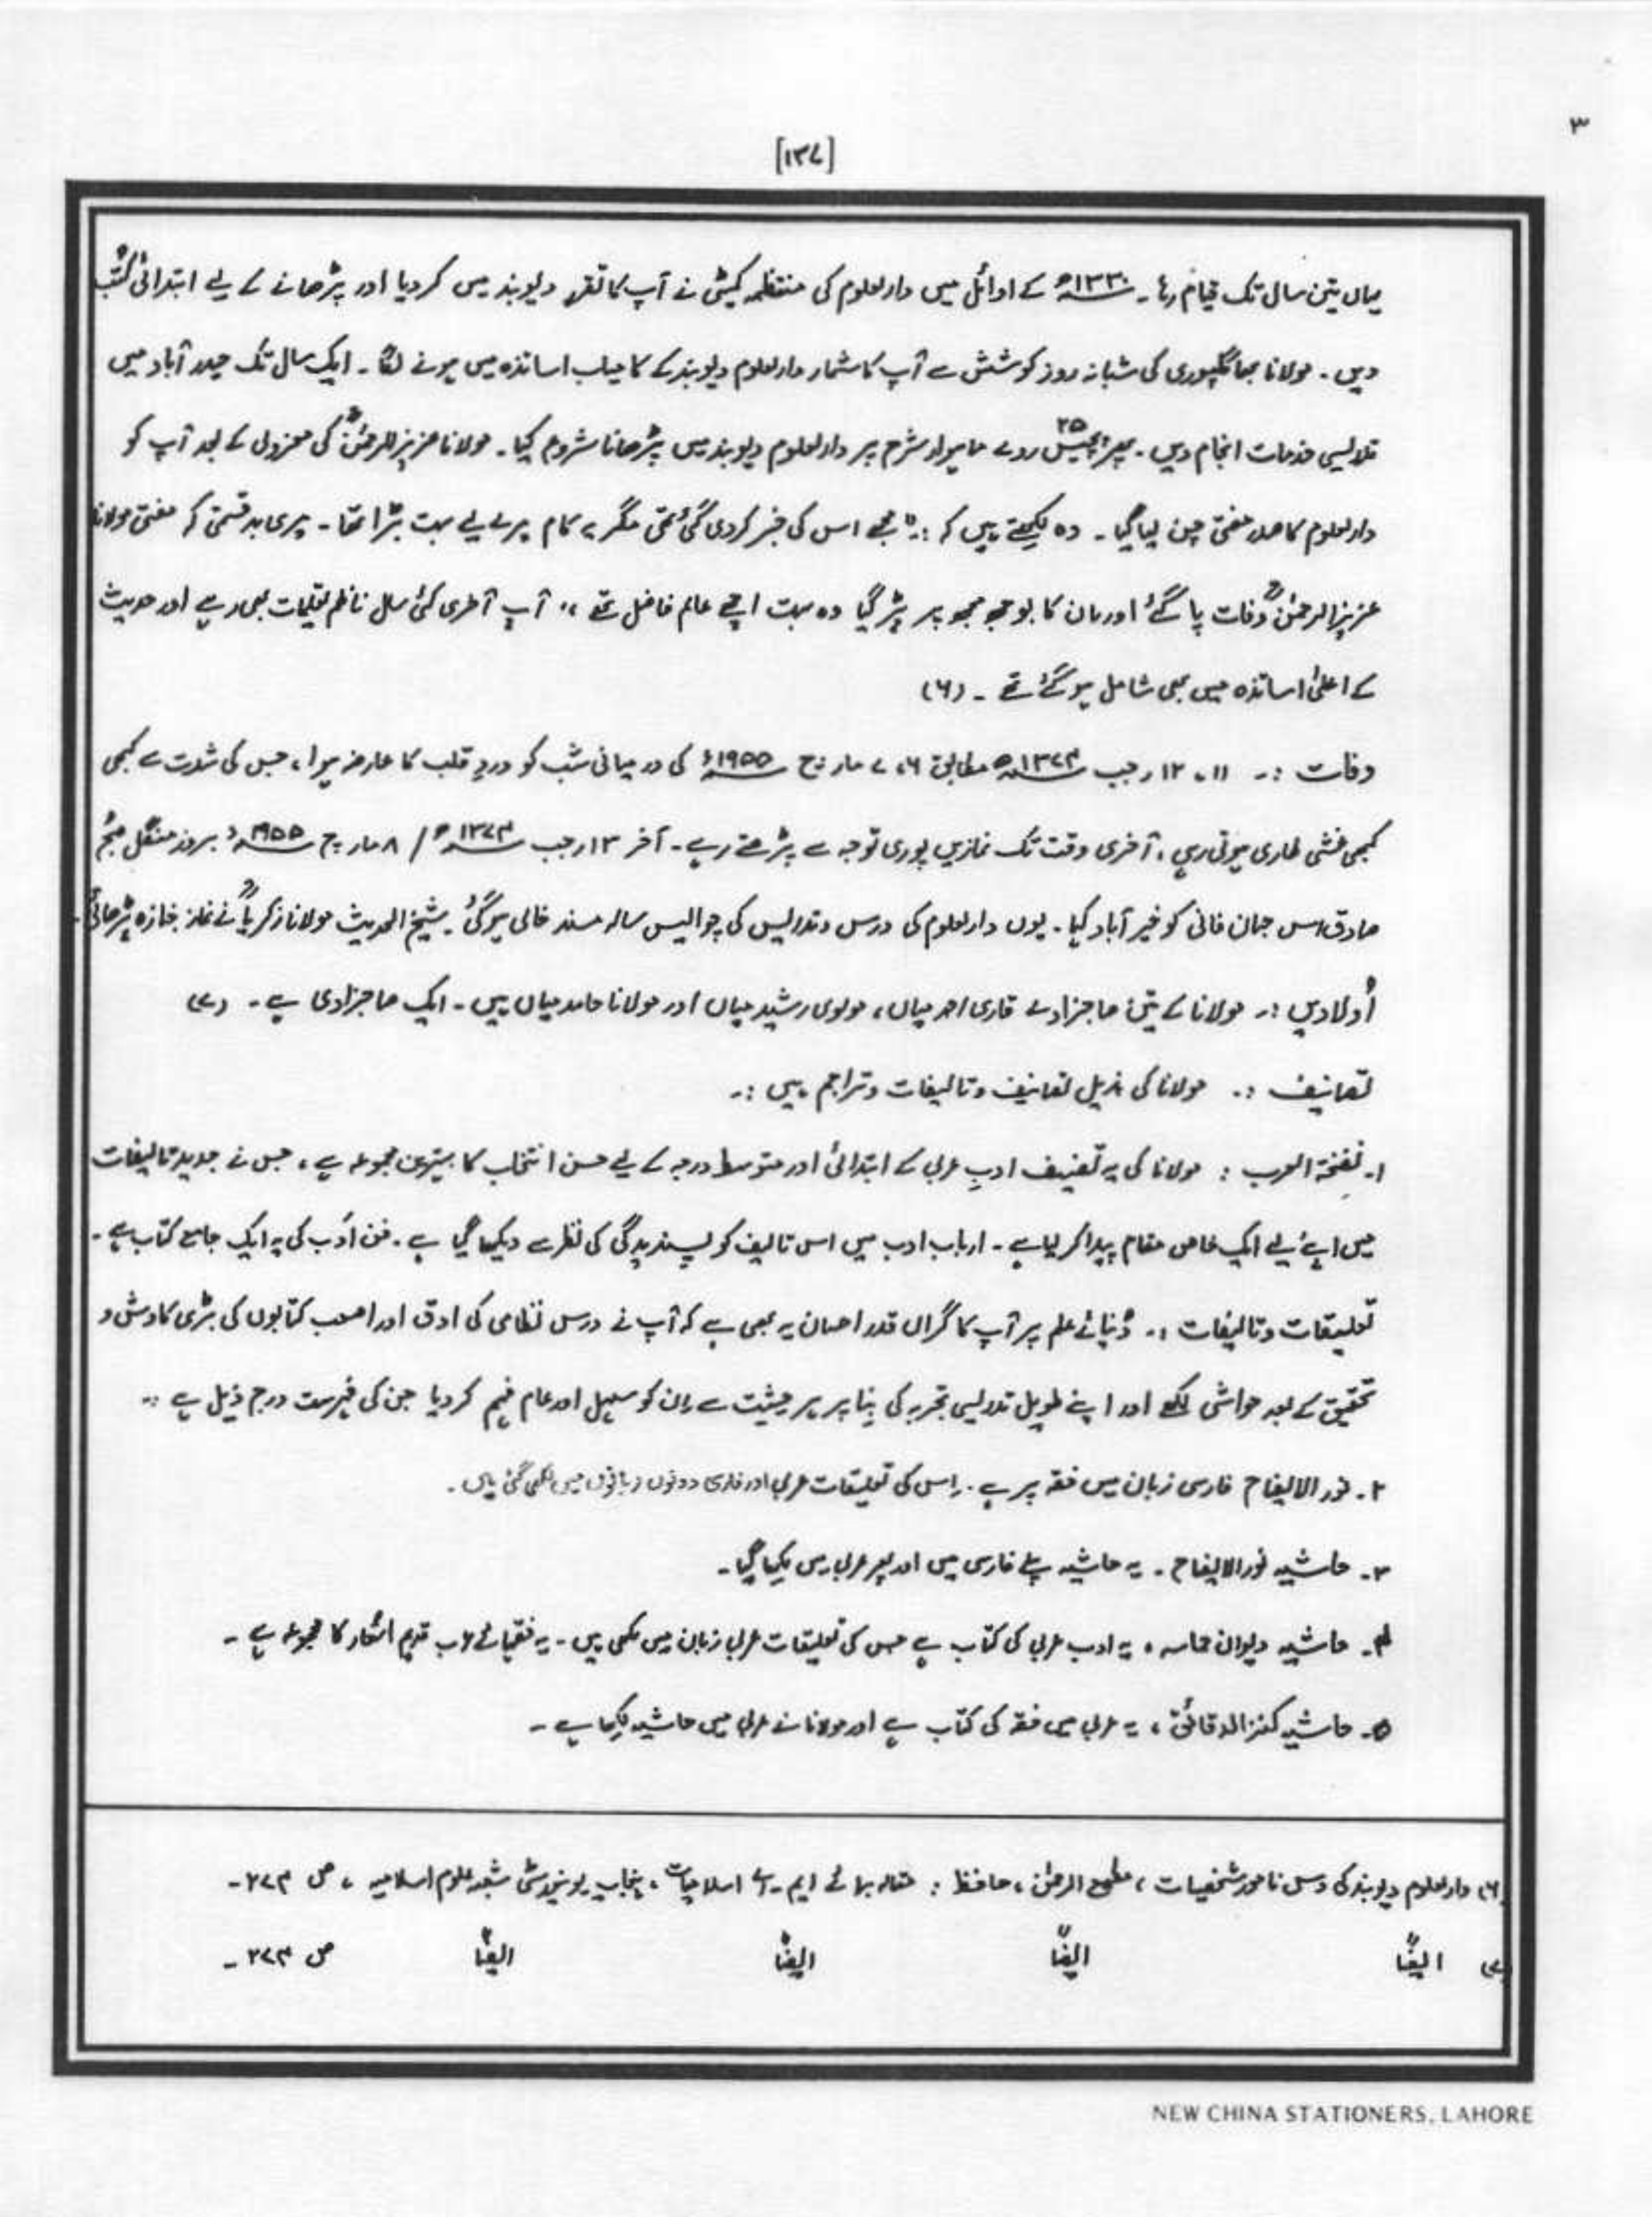 ۳
[۱۳۷]
یہاں تین سال تک قیام رہا۔ ۱۳۳۰ھ کے اوائل میں دارالعلوم کی منتظمہ کمیٹی نے آپ کا تقرر دیوبند میں کر دیا اور پڑھانے کے لیے ابتدائی کتب
دیں۔ مولانا بھاگلپوری کی شبانہ روز کوشش سے آپ کا شمار دارالعلوم دیوبند کے کامیاب اساتذہ میں ہونے لگا۔ ایک سال تک حیدر آباد میں
تدریسی خدمات انجام دیں۔ پھر پچیس ۲۵ روپے ماہوار مشرح پر دارالعلوم دیوبند میں پڑھانا شروع کیا۔ مولانا عزیز الرحمٰنؒ کی معزولی کے بعد آپ کو
دارالعلوم کا صدر مفتی چن لیا گیا۔ وہ لکھتے ہیں کہ :۔ " مجھے اس کی خبر کر دی گئی تھی مگر یہ کام میرے لیے بہت بڑا تھا۔ میری بدقسمتی کہ مفتی مولانا
عزیز الرحمٰنؒ وفات پا گئے اور ان کا بوجھ مجھ پر پڑ گیا وہ بہت اچھے عالم فاضل تھے ،، آپ آخری کئی سال ناظم تعلیمات بھی رہے اور حدیث
کے اعلیٰ اساتذہ میں بھی شامل ہو گئے تھے ۔ (۶)
وفات :۔ ۱۱، ۱۲ رجب ۱۳۷۴ھ مطابق ۶، ۷ مارچ ۱۹۵۵ء کی درمیانی شب کو دردِ قلب کا عارضہ ہوا، جس کی شدت سے کبھی
کبھی غشی طاری ہوتی رہی، آخری وقت تک نمازیں پوری توجہ سے پڑھتے رہے۔ آخر ۱۳ رجب ۱۳۷۴ھ / ۸ مارچ ۱۹۵۵ء بروز منگل صبح
صادق اس جہان فانی کو خیر آباد کہا۔ یوں دارالعلوم کی درس و تدریس کی چوالیس سالہ مسند خالی ہو گئی۔ شیخ الحدیث مولانا زکریاؒ نے نماز جنازہ پڑھائی۔
اُولادیں :۔ مولانا کے تین صاحبزادے قاری احمد میاں، مولوی رشید میاں اور مولانا حامد میاں ہیں۔ ایک صاحبزادی ہے۔ (۷)
تصانیف :۔ مولانا کی بذیل تصانیف و تالیفات و تراجم ہیں :۔
۱۔ نفحۃ العرب : مولانا کی یہ تصنیف ادبِ عربی کے ابتدائی اور متوسط درجہ کے لیے حسن انتخاب کا بہترین مجموعہ ہے، جس نے جدید تالیفات
میں اپنے لیے ایک خاص مقام پیدا کر لیا ہے۔ ارباب ادب میں اس تالیف کو پسندیدگی کی نظر سے دیکھا گیا ہے۔ فن ادب کی یہ ایک جامع کتاب ہے۔
تعلیقات و تالیفات :۔ دُنیائے علم پر آپ کا گراں قدر احسان یہ بھی ہے کہ آپ نے درس نظامی کی ادق اور اصعب کتابوں کی بڑی کاوش و
تحقیق کے بعد حواشی لکھے اور اپنے طویل تدریسی تجربہ کی بنا پر ہر حیثیت سے ان کو سہیل اور عام فہم کر دیا جن کی فہرست درج ذیل ہے :۔
۲۔ نور الایضاح فارسی زبان میں فقہ پر ہے۔ اس کی تعلیقات عربی اور فارسی دونوں زبانوں میں لکھی گئی ہیں۔
۳۔ حاشیہ نور الایضاح۔ یہ حاشیہ پہلے فارسی میں اور پھر عربی میں لکھا گیا۔
۴۔ حاشیہ دیوان حماسہ، یہ ادب عربی کی کتاب ہے جس کی تعلیقات عربی زبان میں لکھی ہیں۔ یہ فقہائے عرب قدیم اشعار کا مجموعہ ہے۔
۵۔ حاشیہ کنز الدقائق، یہ عربی میں فقہ کی کتاب ہے اور مولانا نے عربی میں حاشیہ لکھا ہے۔
(۶) دارالعلوم دیوبند کی دس نامور شخصیات، مطیع الرحمٰن، حافظ : مقالہ برائے ایم۔اے اسلامیات، پنجاب یونیورسٹی شعبہ علوم اسلامیہ، ص ۲۷۴۔
(۷) ایضًا ایضًا ایضًا ایضًا ص ۲۷۴۔
NEW CHINA STATIONERS, LAHORE